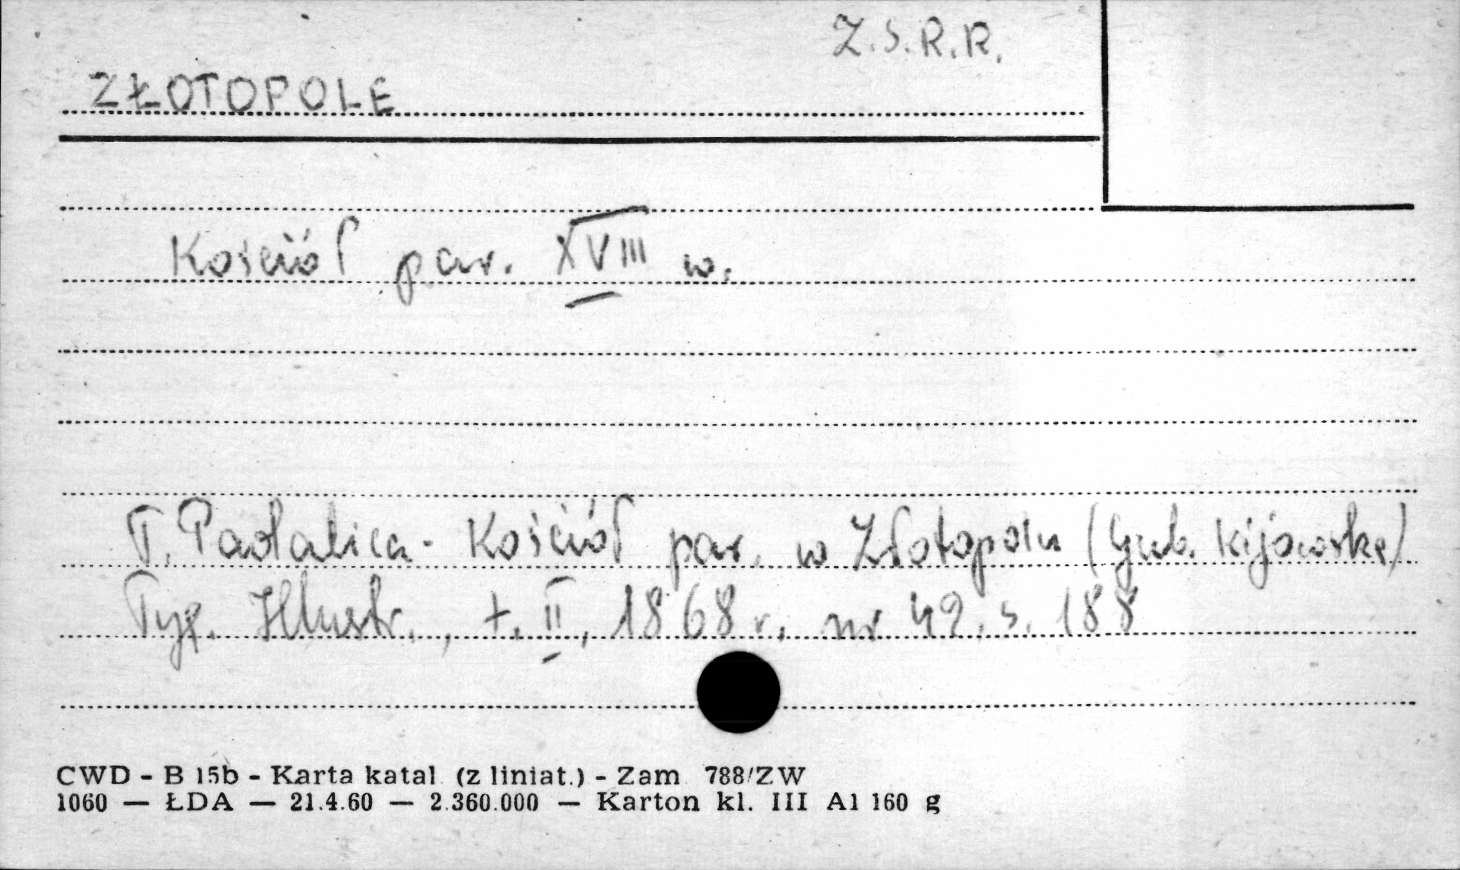 Z.S.R.R.
ZŁOTOPOLE
Kościół par. XVIII w.
T. Padalica - Kościół par. w Złotopolu (Gub. Kijowska)
Tyg. Illustr., t. II, 1868 r. nr 42. s. 188
CWD - B 15b - Karta katal. (z liniat.) - Zam 788/ZW
1060 — ŁDA — 21.4.60 — 2.360.000 — Karton kl. III A1 160 g